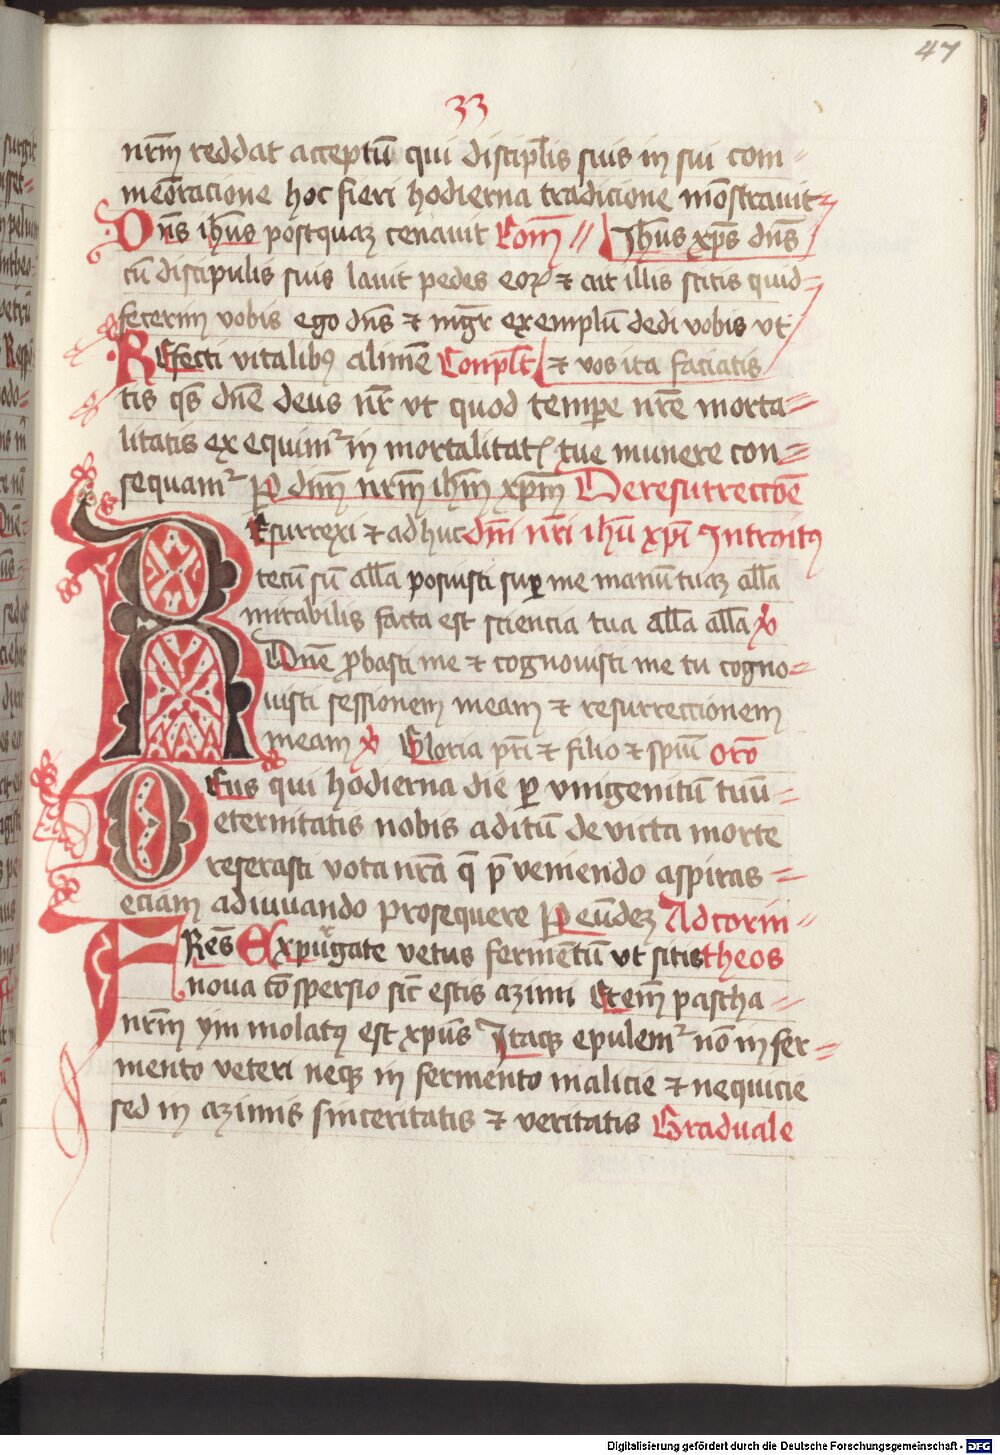 47
33
nr̄m reddat acceptū qui discipl̄is suis in sui com=
meōracione hoc fieri hodierna tradicione mōstrauit
Dn̄s ih̄us postquaꝫ cenauit Com̄ // Jh̄us xp̄s dn̄s
cū discipulis suis lauit pedes eoꝝ ⁊ ait illis scitis quid=
fecerim vobis ego dn̄s ⁊ mḡr exemplū dedi vobis vt
REfecti vitalibꝰ alimē Conpl̄t ⁊ vos ita faciatis
tis qs̄ dn̄e deus nr̄ vt quod tempe nr̄e morta=
litatis ex equimᷣ in mortalitatꝭ tue munere con=
sequamᷣ P dn̄m nr̄m ih̄m xp̄m De resurrectōe
REsurrexi ⁊ adhuc dn̄i nr̄i ih̄u xp̄i Introitꝰ
tecū sū all̄a posuisti suꝑ me manū tuaꝫ all̄a
mirabilis facta est sciencia tua all̄a all̄a v̄
Dn̄e ꝓbasti me ⁊ cognouisti me tu cogno=
uisti sessionem meam ⁊ resurrectionem
meam v̄ Gloria pr̄i ⁊ filio ⁊ spūi Orō
DEus qui hodierna die ꝑ vnigenitū tuū=
eternitatis nobis aditū deuicta morte
reserasti vota nr̄a q̄ p̄ veniendo aspiras=
eciam adiuuando prosequere P eūdeꝫ Ad corin=
FREs̄ Expurgate vetus fermentū vt sitis theos
noua cōspersio sic̄ estis azimi Etem̄ pascha
nr̄m ym molatꝰ est xp̄us Itaqꝫ epulemᷣ nō in fer=
mento veteri neqꝫ in fermento malicie ⁊ nequicie
sed in azimis sinceritatis ⁊ veritatis Graduale
Digitalisierung gefördert durch die Deutsche Forschungsgemeinschaft - DFG